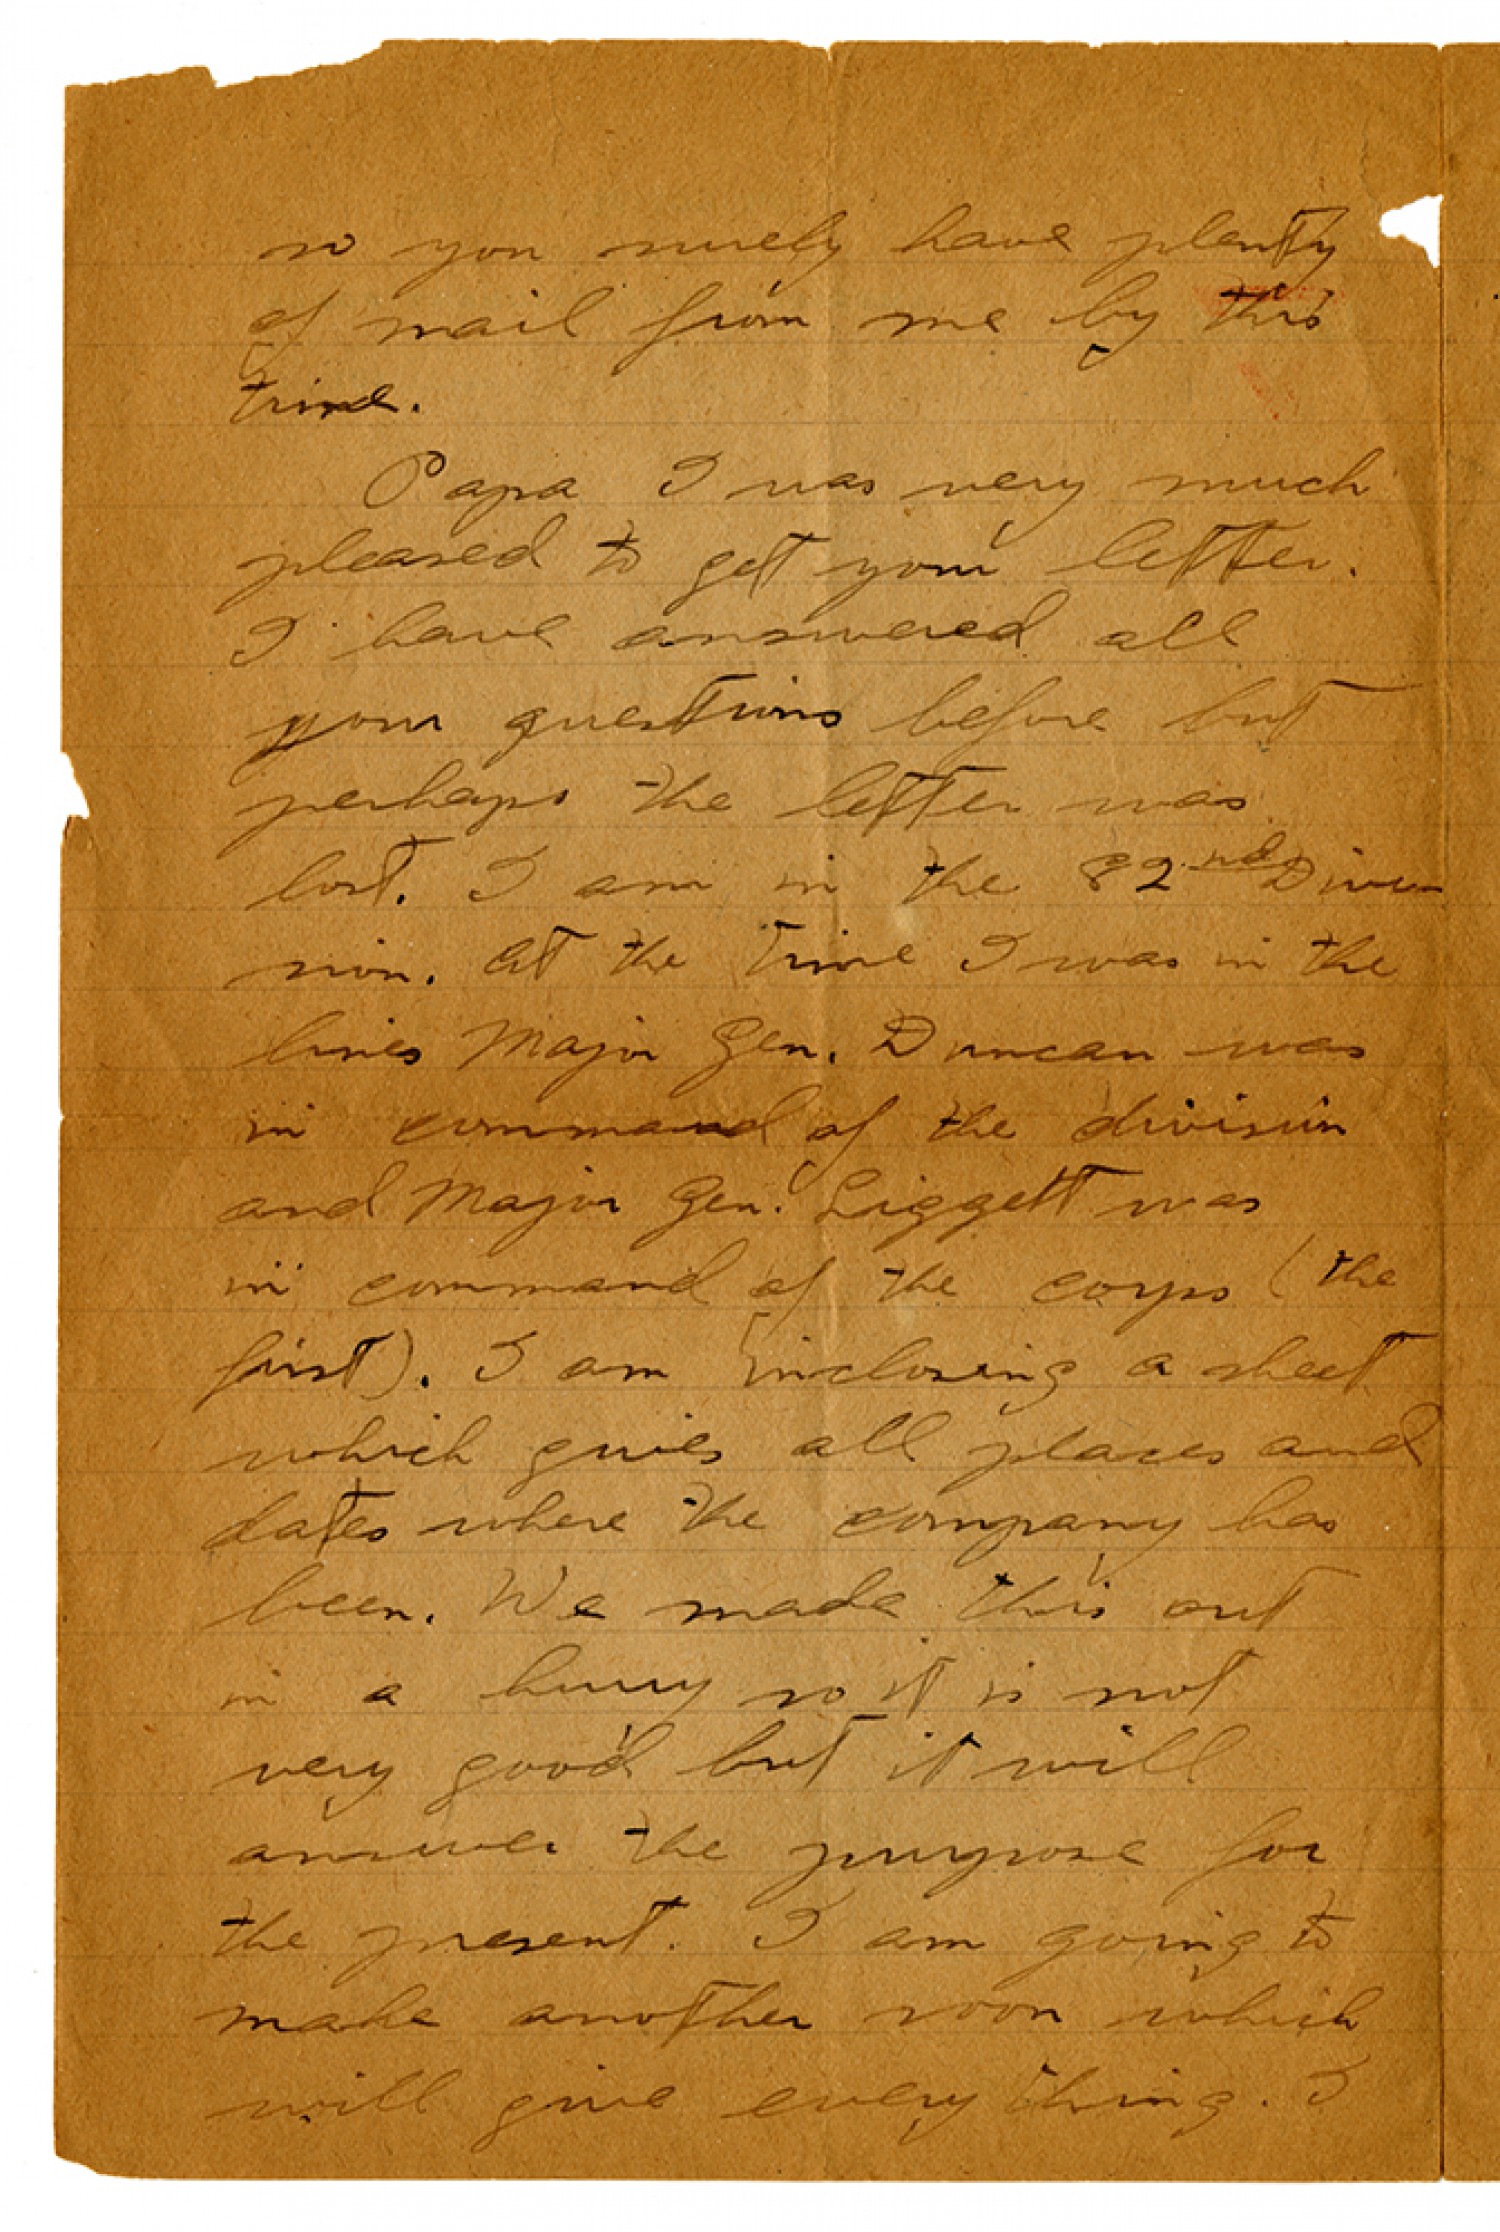 so you surely have plenty
of mail from me by this
time.
Papa I was very much
pleased to get your letter.
I have answered all
your questions before but
perhaps the letter was
lost. I am in the 82nd Divi-
sion. At the time I was in the
lines Major Gen. Duncan was
in command of the division
and Major Gen. Liggett was
in command of the corps (the
first). I am inclosing a sheet
which gives all places and
dates where the company has
been. We made this out
in a hurry so it is not
very good but it will
answer the purpose for
the present. I am going to
make another soon which
will give everything. I